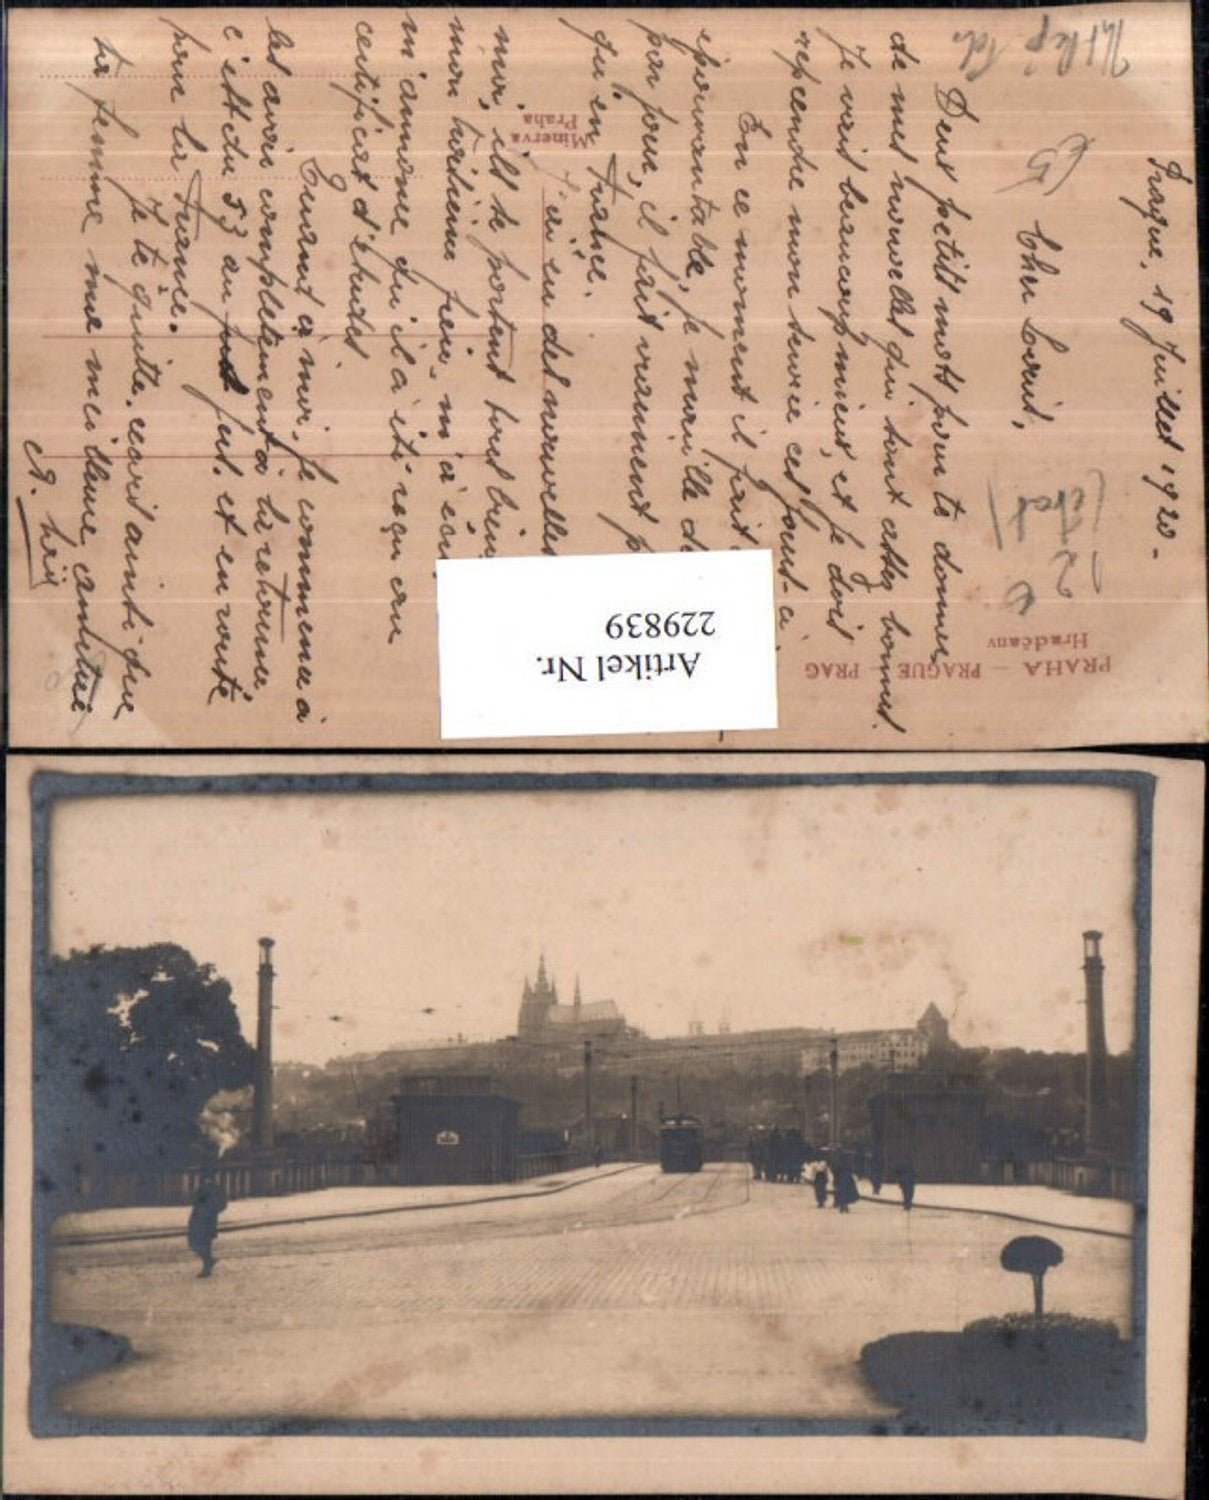 Prague, 19 Juillet 1920 -
Cher Cousin,
Deux petits mots pour te donner
de mes nouvelles qui sont assez bonnes.
Je vais beaucoup mieux, et je dois
reprendre mon service ces jours-ci
En ce moment il fait
épouvantable, je mouille de
par jour, il fait vraiment p
qu'en France.
J'ai eu des nouvelles
moi, ils se portent tous bien
mon troisième frère, m'a écri
m'annonce qu'il a été reçu au
certificat d'études
Quant à moi, je commence à
les avoir complètement à la retourne
c'est du 53 au jus. et en route
pour la France.
Je te quitte, cous ainsi que
ta femme une meilleure amitié
PRAHA — PRAGUE — PRAG
Hradčany
Minerva
Praha
Artikel Nr.
229839
65
12